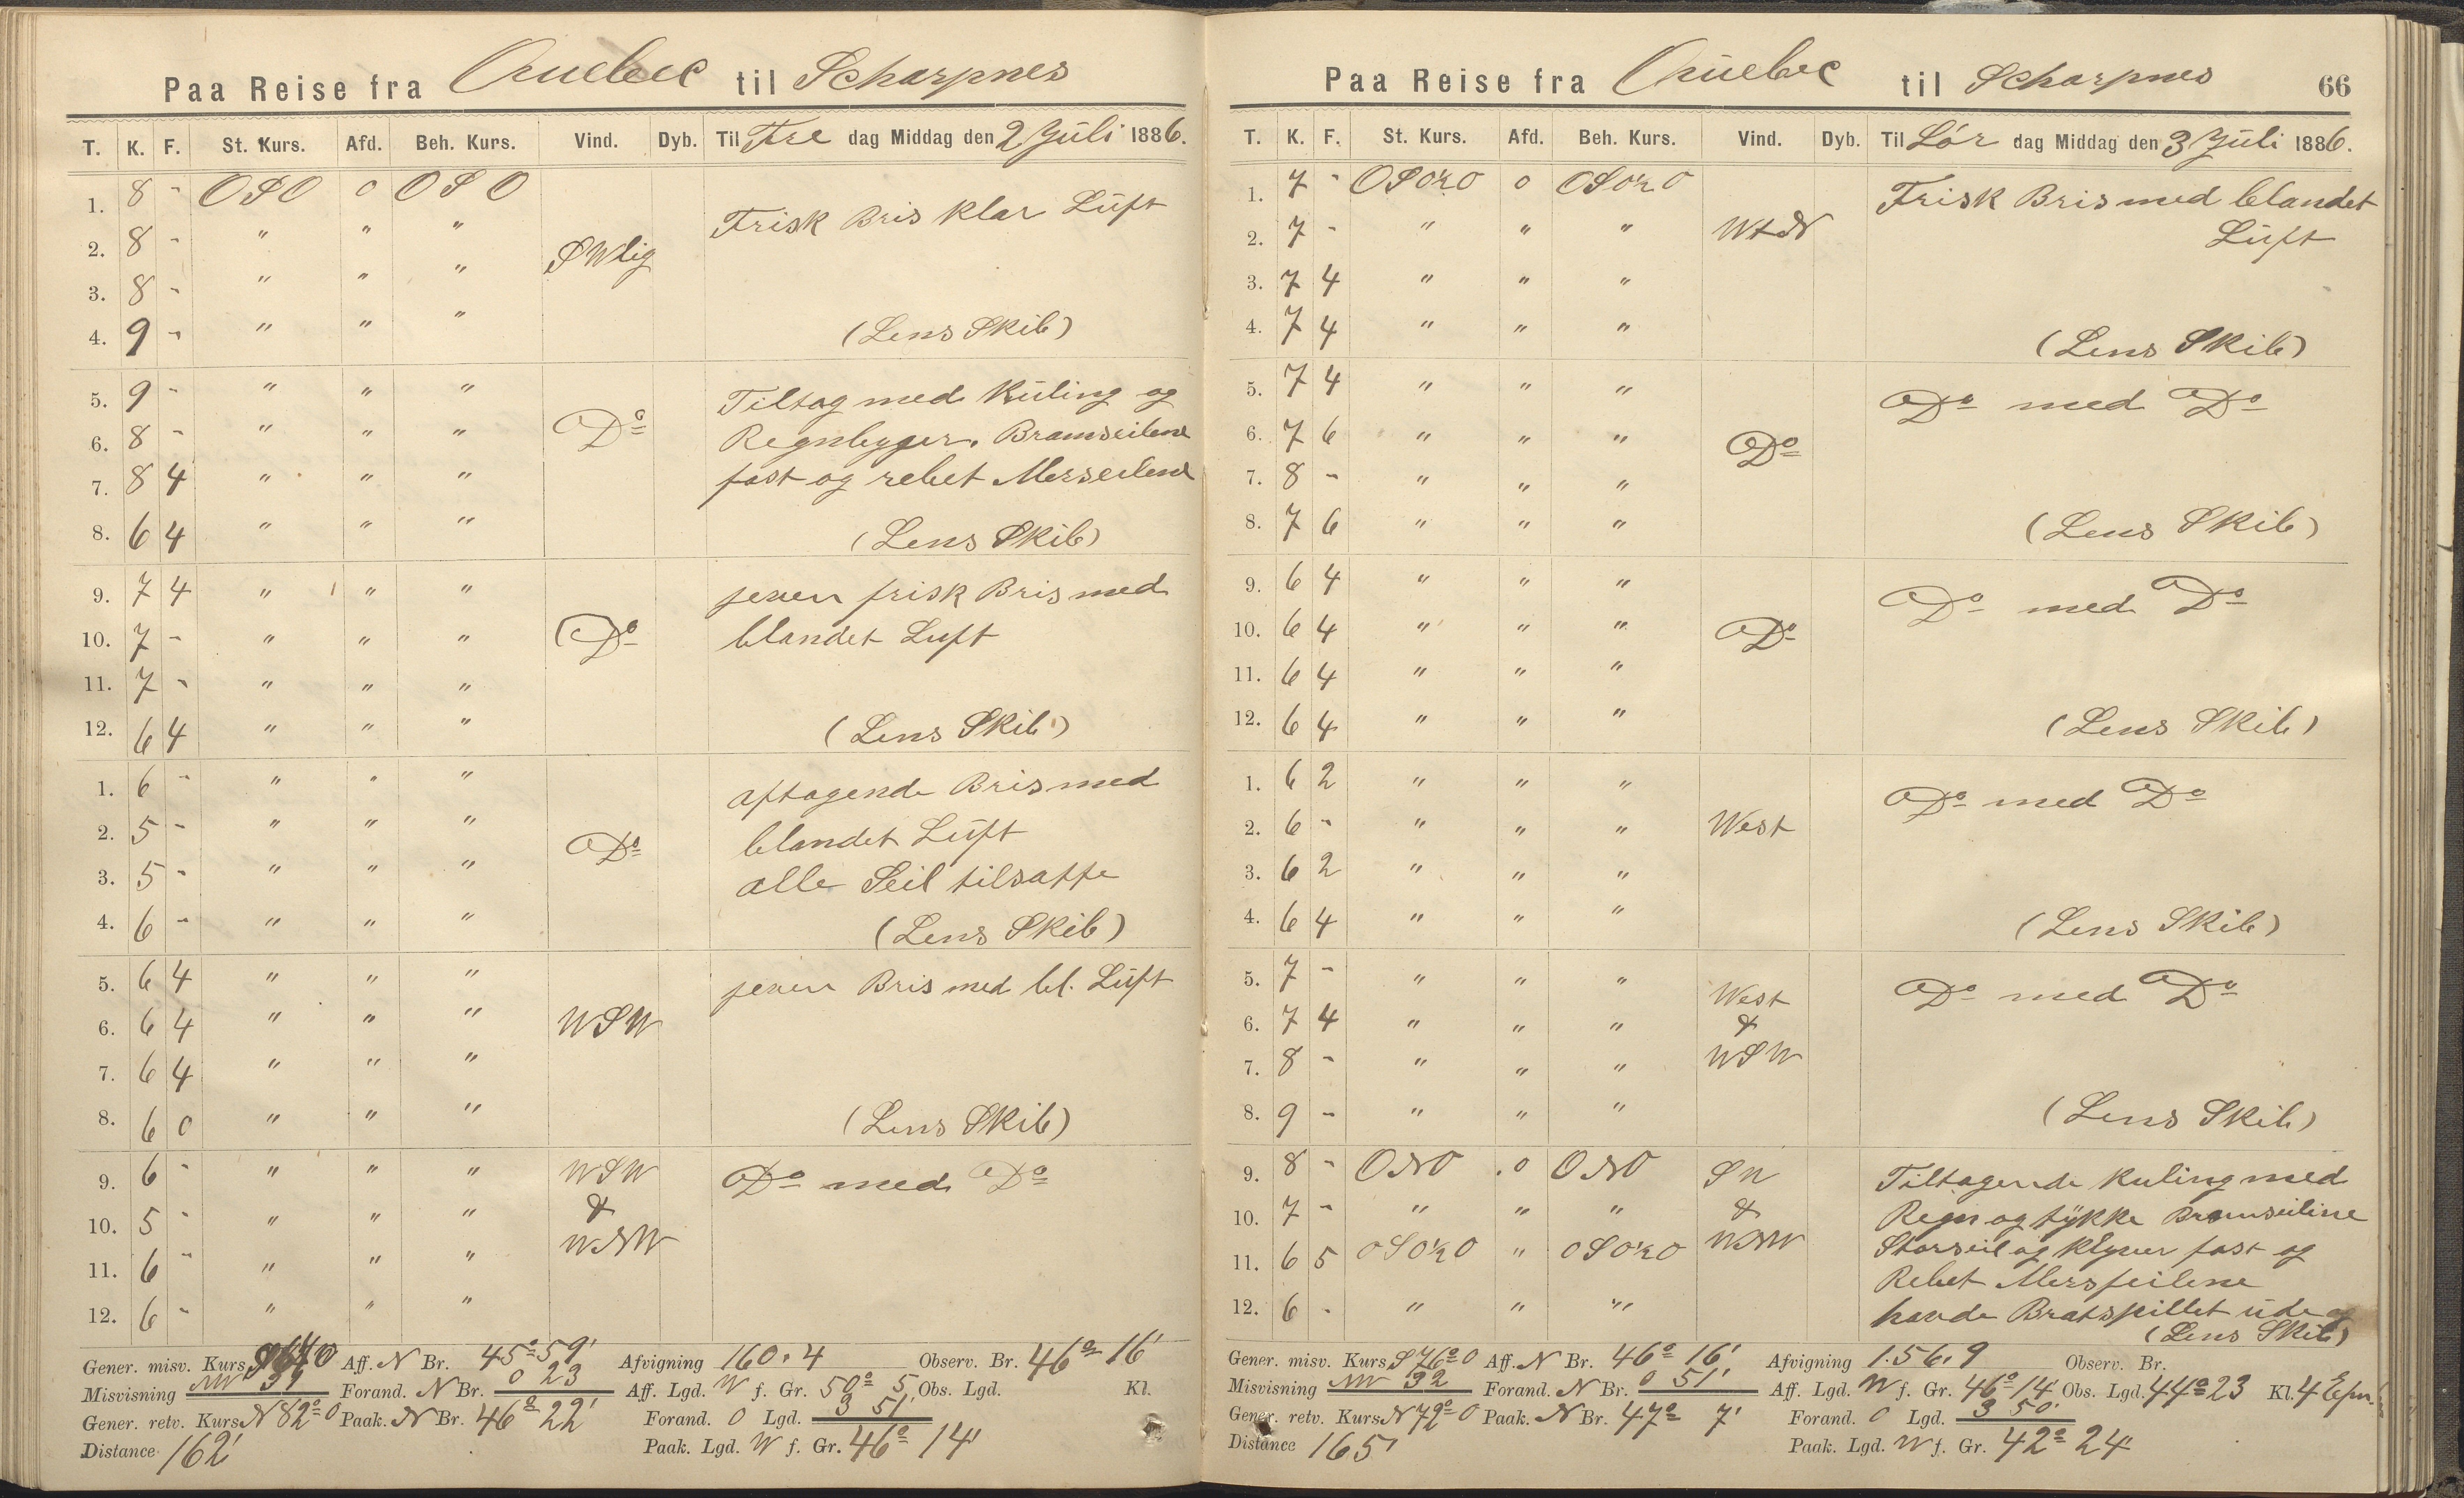 Paa Reise fra Quebec til Scharpnes
T. K. F. St. Kurs. Afd. Beh. Kurs. Vind. Dyb. Til Fre dag Middag den 2 Juli 1886.
1. 8 - OSO 0 OSO Frisk Bris klar Luft
2. 8 - " " " SWlig
3. 8 - " " "
4. 9 - " " " (Lens Skib)
5. 9 - " " " Tiltog med Kuling og
6. 8 - " " " Do Regnbyger. Bramseilene
7. 8 4 " " " fast og rebet Merseilene
8. 6 4 " " " (Lens Skib)
9. 7 4 " " " jevn frisk Bris med
10. 7 - " " " Do blandet Luft
11. 7 - " " "
12. 6 4 " " " (Lens Skib)
1. 6 - " " " aftagende Bris med
2. 5 - " " " Do blandet Luft
3. 5 - " " " alle Seil tilsatte
4. 6 - " " " (Lens Skib)
5. 6 4 " " " jevn Bris med bl. Luft
6. 6 4 " " " WSW
7. 6 4 " " "
8. 6 0 " " " (Lens Skib)
9. 6 - " " " WSW Do med Do
10. 5 - " " " &
11. 6 - " " " WNW
12. 6 - " " "
Gener. misv. Kurs Aff. N Br. 45° 59' Afvigning 160.4 Observ. Br. 46° 16'
Misvisning NW 31 Forand. N Br. 0 23 Aff. Lgd. W f. Gr. 50° 5 Obs. Lgd. Kl.
Gener. retv. Kurs N 82° O Paak. N Br. 46° 22' Forand. O Lgd. 3 51'
Distance 162' Paak. Lgd. W f. Gr. 46° 14'
Paa Reise fra Quebec til Scharpnes 66
T. K. F. St. Kurs. Afd. Beh. Kurs. Vind. Dyb. Til Lór dag Middag den 3 Juli 1886.
1. 7 - OSO½O 0 OSO½O Frisk Bris med blandet
2. 7 - " " " WtN Luft
3. 7 4 " " "
4. 7 4 " " " (Lens Skib)
5. 7 4 " " " Do med Do
6. 7 6 " " " Do
7. 8 - " " "
8. 7 6 " " " (Lens Skib)
9. 6 4 " " " Do med Do
10. 6 4 " " " Do
11. 6 4 " " "
12. 6 4 " " " (Lens Skib)
1. 6 2 " " " Do med Do
2. 6 - " " " West
3. 6 2 " " "
4. 6 4 " " " (Lens Skib)
5. 7 - " " " West Do med Do
6. 7 4 " " " &
7. 8 - " " " WSW
8. 9 - " " " (Lens Skib)
9. 8 - ONO 0 ONO SW Tiltagende Kuling med
10. 7 - " " " & Regn og tykke Bramseilene
11. 6 5 OSO½O " OSO½O WNW Storseil og Klyver fast og
Rebet Merseilene
12. 6 - " " " havde Bratspillet ude og
(Lens Skib)
Gener. misv. Kurs S 76° O Aff. N Br. 46° 16' Afvigning 1.56.9 Observ. Br.
Misvisning NW 32 Forand. N Br. 0 51' Aff. Lgd. W f. Gr. 46° 14' Obs. Lgd. 44° 23 Kl. 4
Gener. retv. Kurs N 72° O Paak. N Br. 47° 7' Forand. O Lgd. 3 50'
Distance 165' Paak. Lgd. W f. Gr. 42° 24'